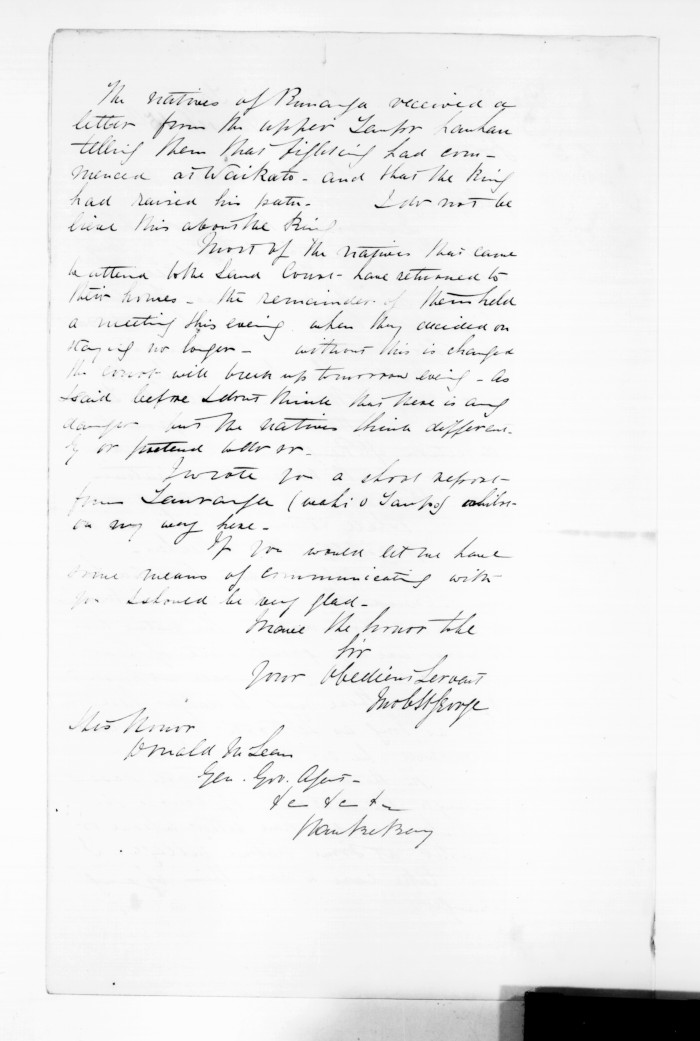 The natives of Runanga received a
letter from the upper Taupo hauhau
telling them that fighting had com-
menced at Waikato - and that the King
had raised his patu - I do not be
lieve this about the King
Most of the natives that came
to attend to the Land Court - have returned to
their homes - the remainder of them held
a meeting this evening when they decided on
staying no longer - without this is changed
the court will break up tomorrow evening - as
I said before I dont think that there is any
danger but the natives think different-
ly or pretend to do so -
I wrote you a short report -
from Tauranga (Taupo) whilst
on my way here -
If you would let me have
some means of communicating with
you I should be very glad -
I have the honor to be
Sir
Your Obedient Servant
Jno C St George
His Honor
Donald McLean
Gen. Gov. Agent -
&c &c &c
Hawke Bay